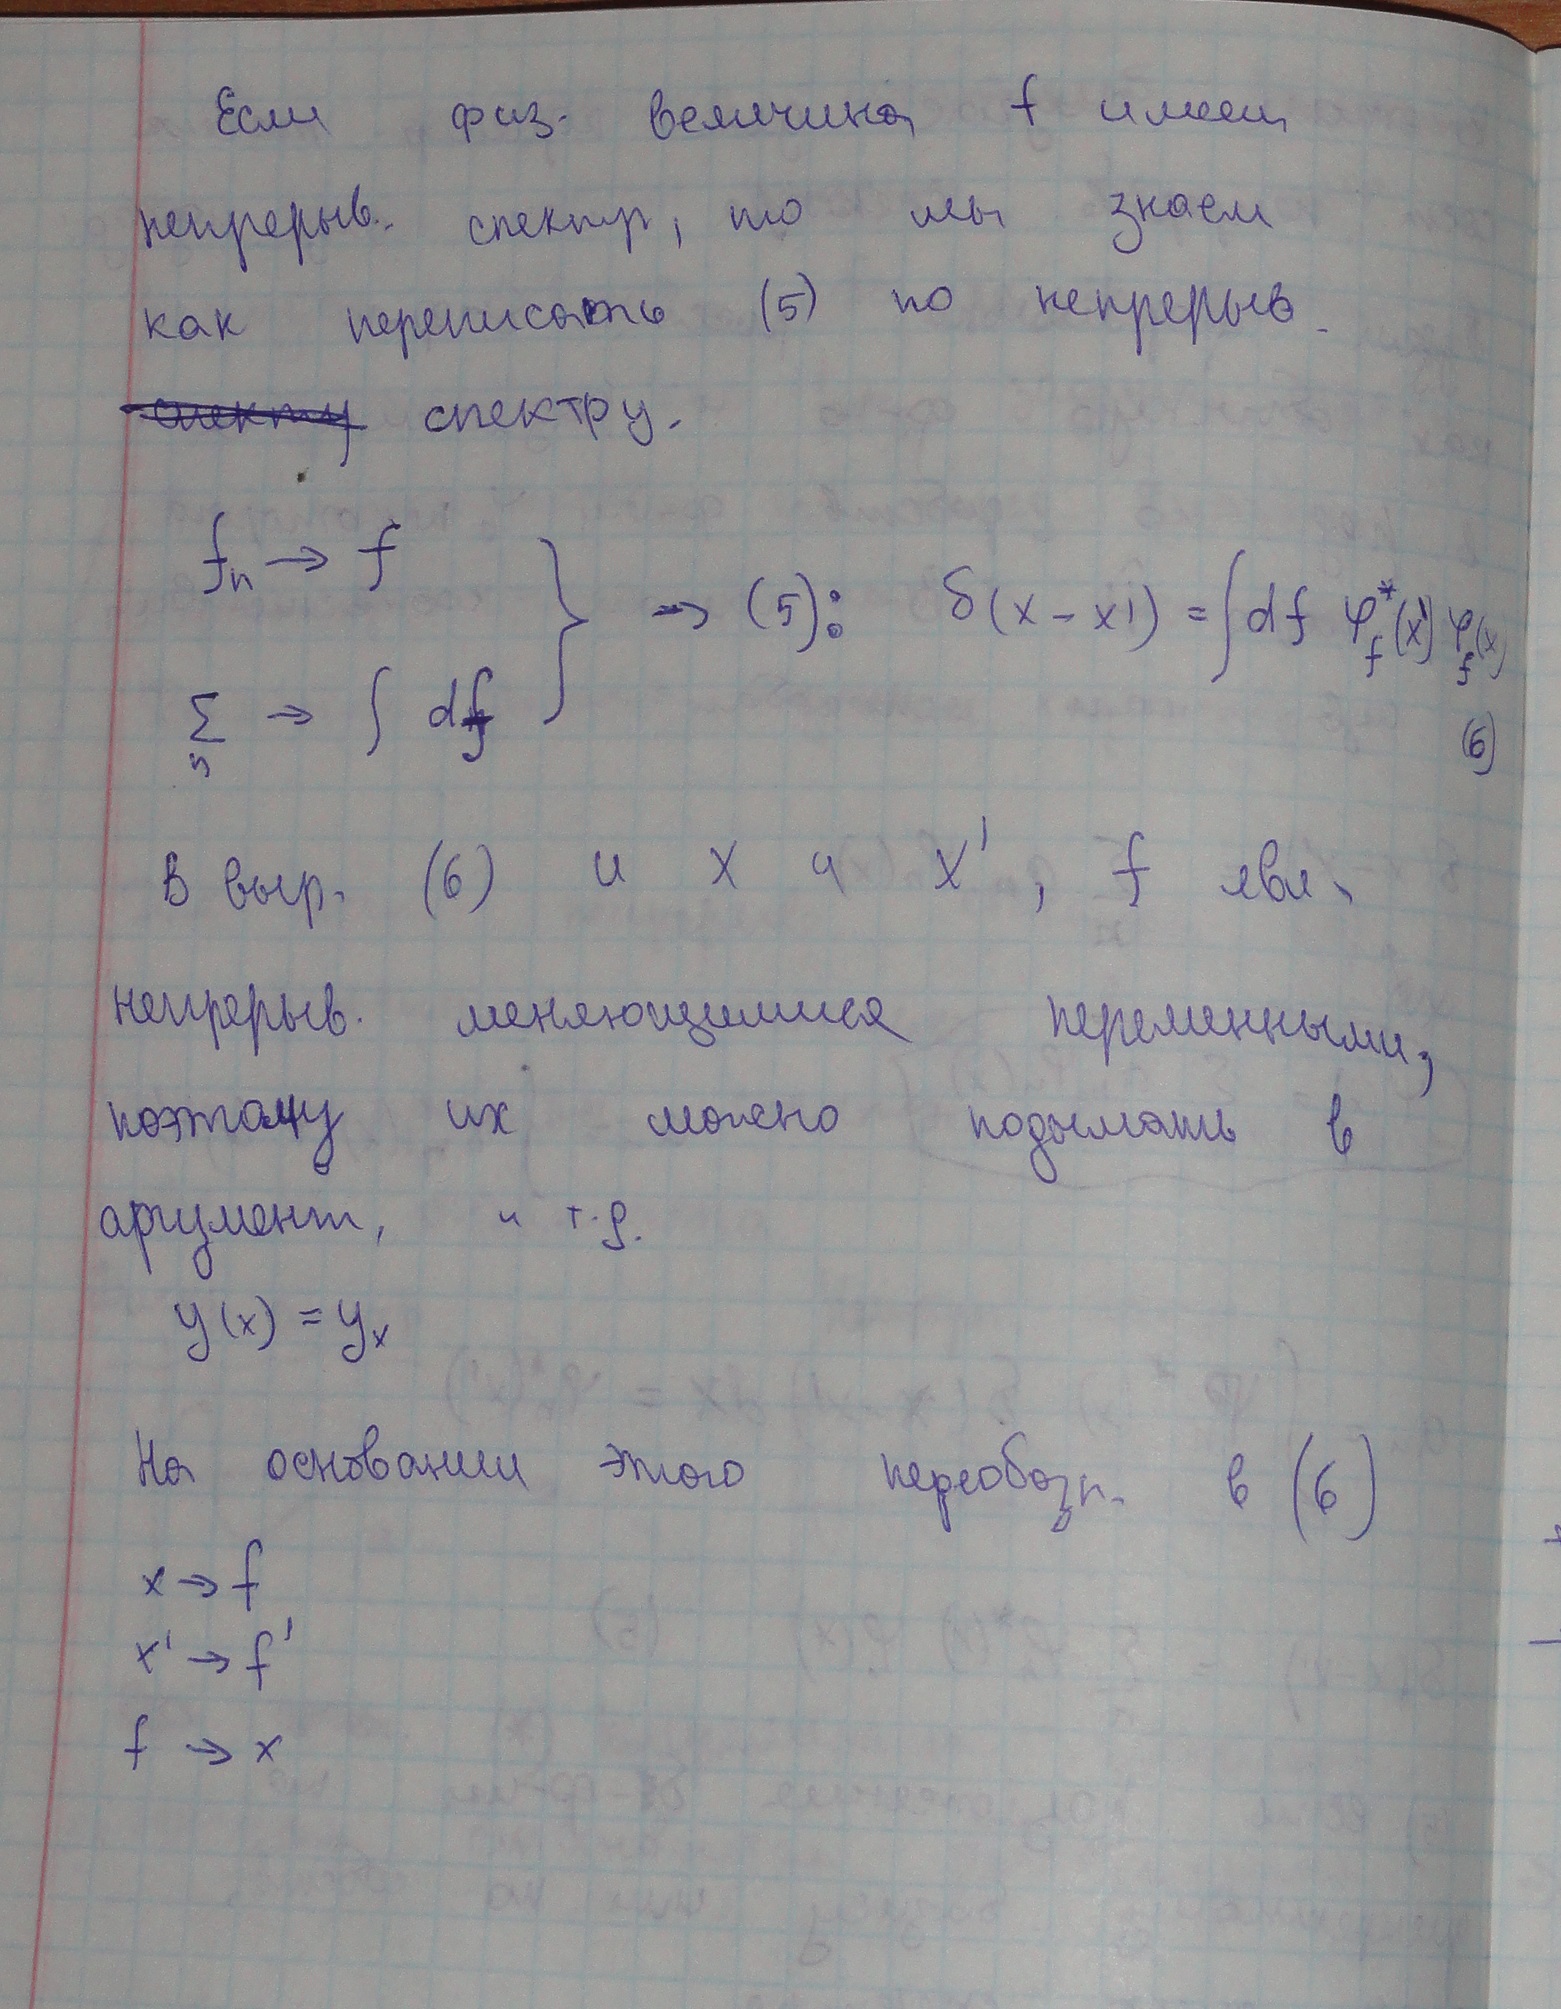 Если физ. величина f имеет
непрерыв. спектр, то мы знаем
как переписать (5) по непрерыв.
спектру.
fₙ → f
→ (5): δ(x - x') = ∫ df φ*_f(x') φ_f(x)
∑ₙ → ∫ df
(6)
В выр. (6) и x и x', f явл.
непрерыв. меняющимися переменными,
поэтому их можно подымать в
аргумент, и т.д.
y(x) = yₓ
На основании этого переобозн. в (6)
x → f
x' → f'
f → x